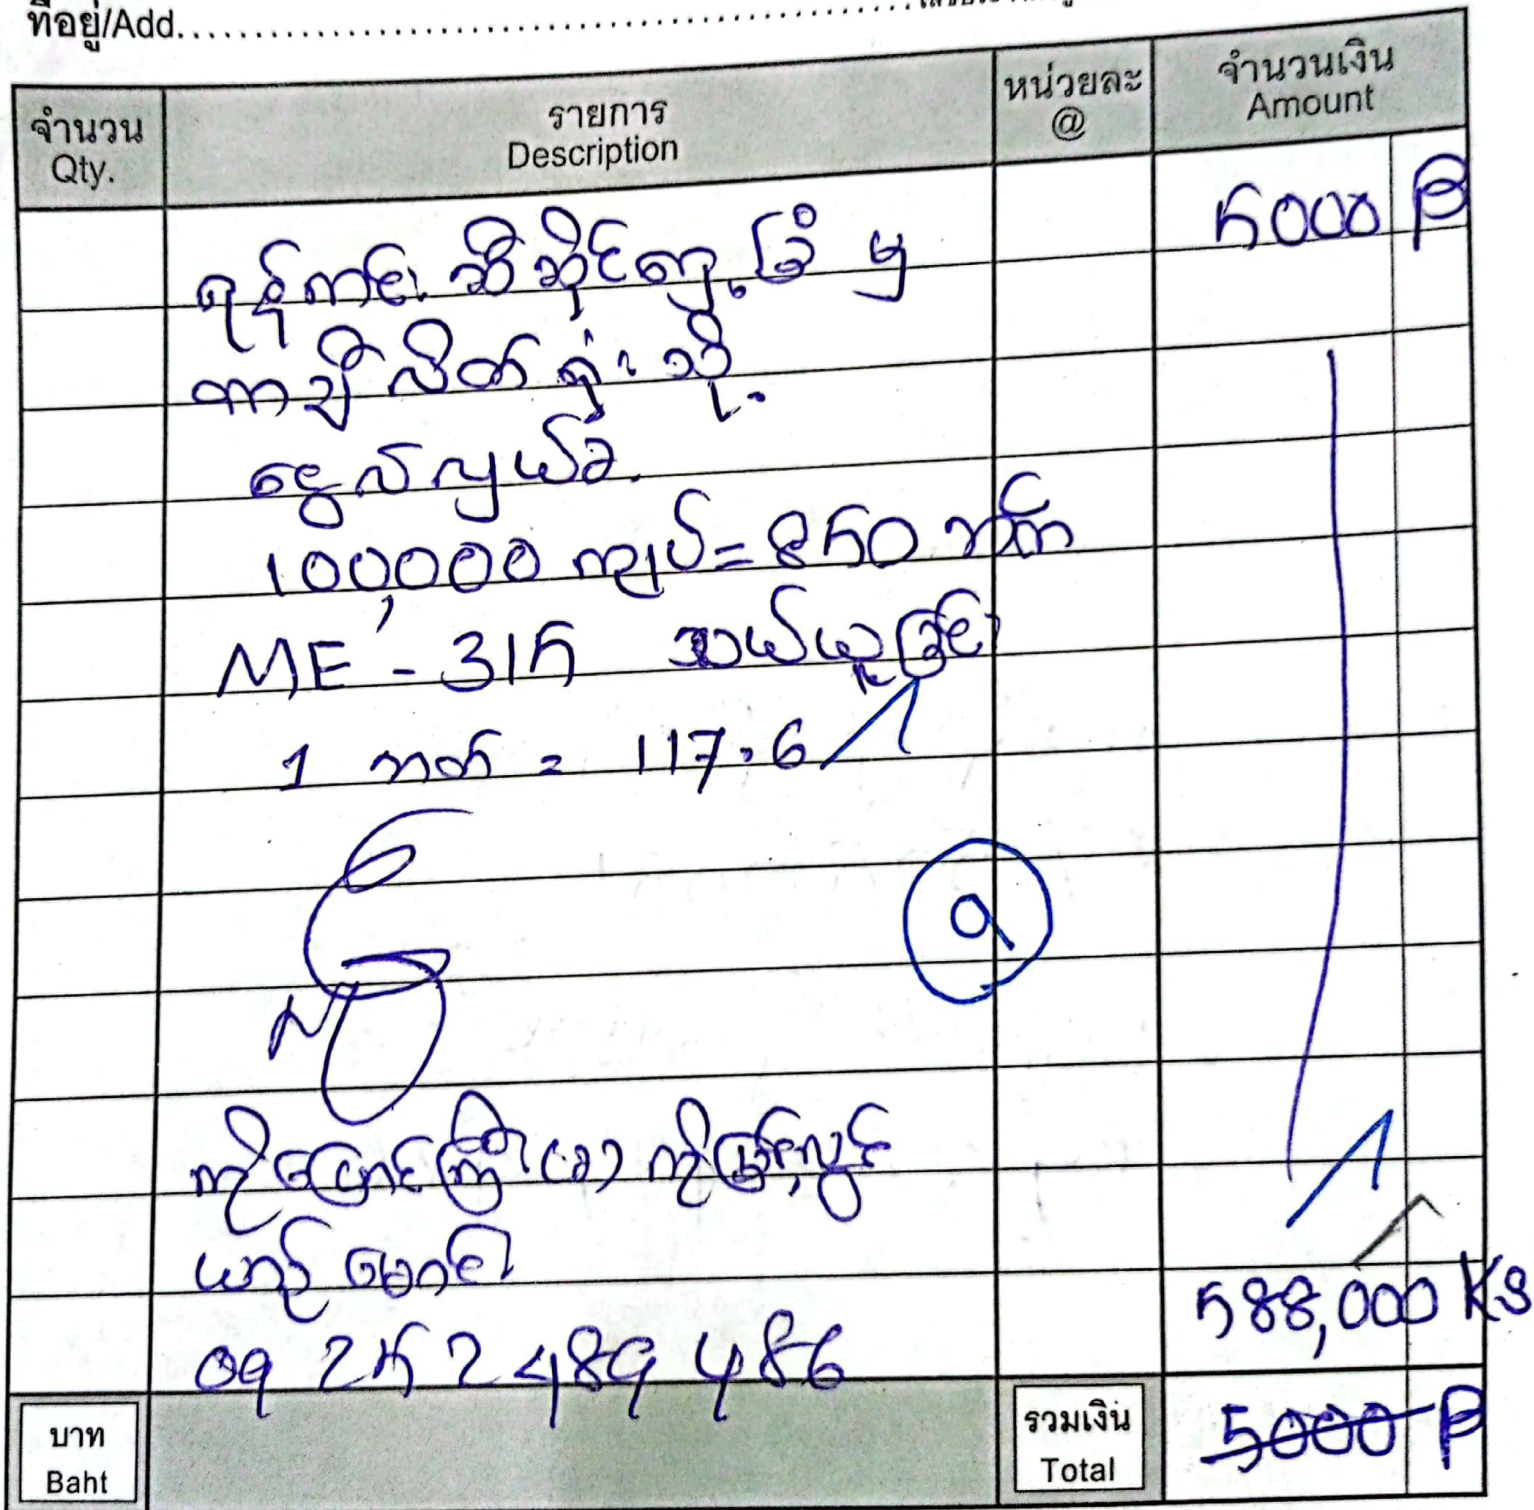 ที่อยู่/Add.
จำนวน Qty. รายการ Description หน่วยละ @ จำนวนเงิน Amount
ရန်ကင်း ဆီဆိုင်ရှေ့ခြံ မှ 5000 B
တာချီလိတ် ရုံး သို့
ငွေလဲလှယ်ခ
100,000 ကျပ် = 850 ဘတ်
ME - 315 သယ်ယူခြင်း
1 ဘတ် = 117.6
၅
ကိုပြောင်ကြီး (ခ) ကိုမြင့်လွင်
ယာဉ်မောင်း
588,000 Ks
09 252 489 486
บาท Baht รวมเงิน Total 5000 B